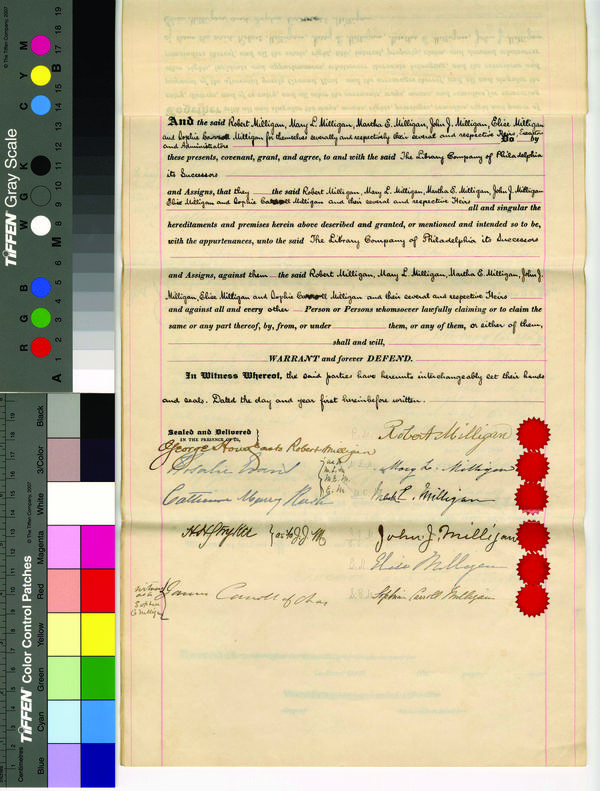 And the said Robert Milligan, Mary L. Milligan, Martha E. Milligan, John J. Milligan, Elise Milligan
and Sophie Carroll Milligan for themselves severally and respectively their several and respective Heirs, Executors
and Administrators Do by
these presents, covenant, grant, and agree, to and with the said The Library Company of Philadelphia
its Successors
and Assigns, that they the said Robert Milligan, Mary L. Milligan, Martha E. Milligan, John J. Milligan
Elise Milligan and Sophie Carroll Milligan and their several and respective Heirs all and singular the
hereditaments and premises herein above described and granted, or mentioned and intended so to be,
with the appurtenances, unto the said The Library Company of Philadelphia its Successors
and Assigns, against them the said Robert Milligan, Mary L. Milligan, Martha E. Milligan, John J.
Milligan, Elise Milligan and Sophie Carroll Milligan and their several and respective Heirs
and against all and every other Person or Persons whomsoever lawfully claiming or to claim the
same or any part thereof, by, from, or under them, or any of them, or either of them,
shall and will,
WARRANT and forever DEFEND.
In Witness Whereof, the said parties have hereunto interchangeably set their hands
and seals. Dated the day and year first hereinbefore written.
Sealed and Delivered
IN THE PRESENCE OF US,
George as to Robert Milligan
Robert Milligan
Mary L. Milligan
M. E. M.
E. M.
Milligan
as to J. J. M.
John J. Milligan
Elise Milligan
witness
as to
Sophie
C. Milligan
James Carroll of Chas
Sophie Carroll Milligan
TIFFEN Gray Scale
© The Tiffen Company, 2007
R G B W G K C Y M
A 1 2 3 4 5 6 M 8 9 10 11 12 13 14 15 B 17 18 19
TIFFEN Color Control Patches
© The Tiffen Company, 2007
Centimetres
Blue Cyan Green Yellow Red Magenta White 3/Color Black